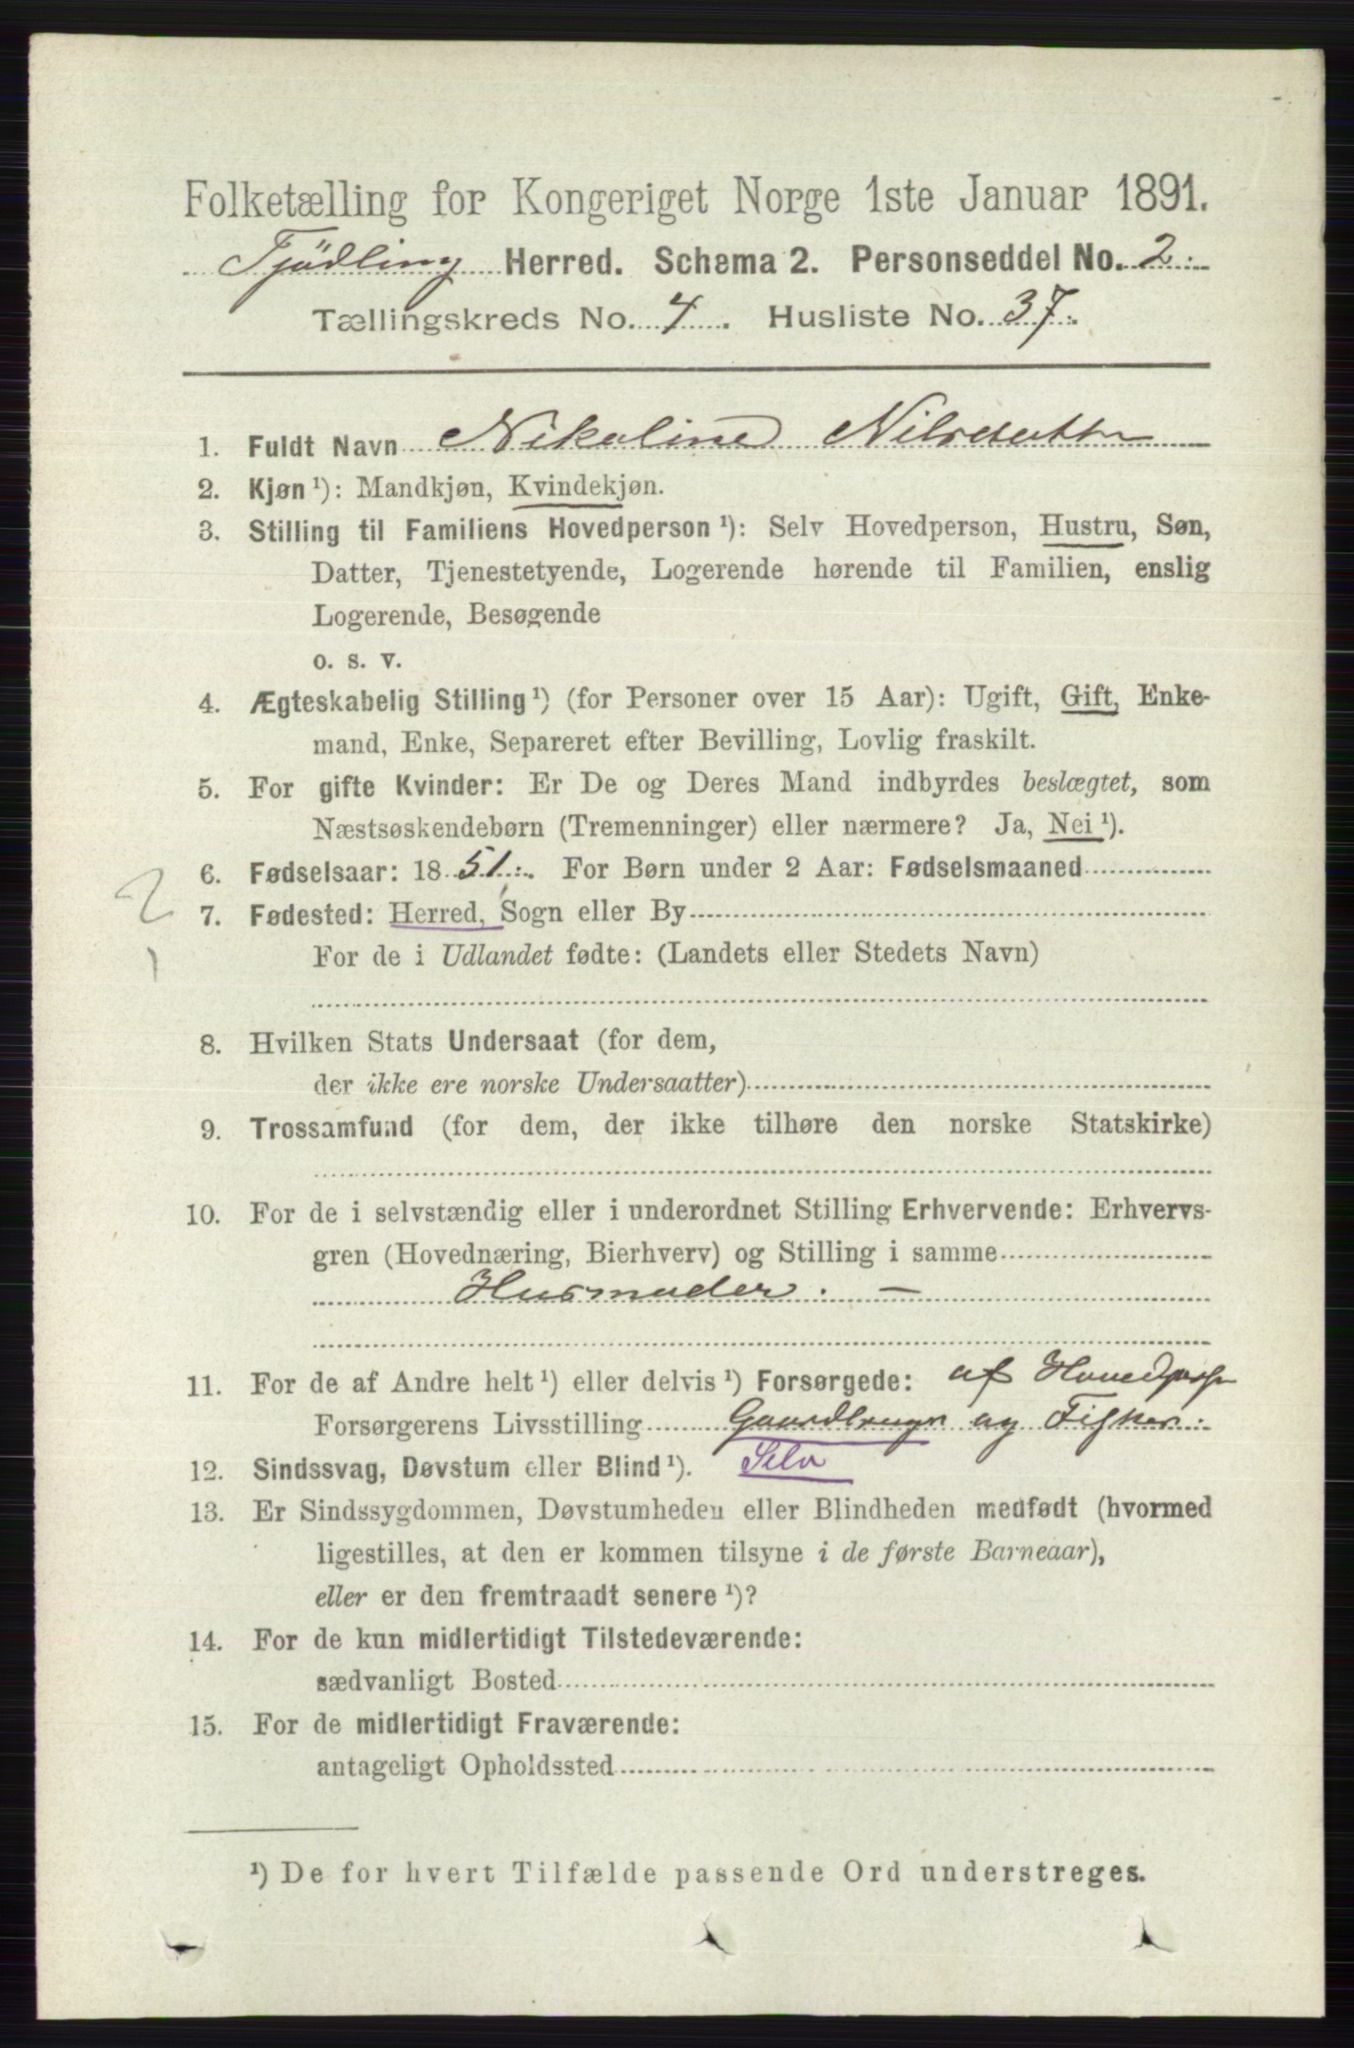 Folketælling for Kongeriget Norge 1ste Januar 1891.
Tjødling Herred. Schema 2. Personseddel No. 2.
Tællingskreds No. 4. Husliste No. 37.
1. Fuldt Navn Nikoline Nilsdatter
2. Kjøn ¹): Mandkjøn, Kvindekjøn.
3. Stilling til Familiens Hovedperson ¹): Selv Hovedperson, Hustru, Søn,
Datter, Tjenestetyende, Logerende hørende til Familien, enslig
Logerende, Besøgende
o. s. v.
4. Ægteskabelig Stilling ¹) (for Personer over 15 Aar): Ugift, Gift, Enke-
mand, Enke, Separeret efter Bevilling, Lovlig fraskilt.
5. For gifte Kvinder: Er De og Deres Mand indbyrdes beslægtet, som
Næstsøskendebørn (Tremenninger) eller nærmere? Ja, Nei ¹).
6. Fødselsaar: 1851. For Børn under 2 Aar: Fødselsmaaned
2
7. Fødested: Herred, Sogn eller By
1
For de i Udlandet fødte: (Landets eller Stedets Navn)
8. Hvilken Stats Undersaat (for dem,
der ikke ere norske Undersaatter)
9. Trossamfund (for dem, der ikke tilhøre den norske Statskirke)
10. For de i selvstændig eller i underordnet Stilling Erhvervende: Erhvervs-
gren (Hovednæring, Bierhverv) og Stilling i samme
Husmoder. —
11. For de af Andre helt ¹) eller delvis ¹) Forsørgede: af
Forsørgerens Livsstilling Gaardbruger og Fisker.
12. Sindssvag, Døvstum eller Blind ¹). Selv
13. Er Sindssygdommen, Døvstumheden eller Blindheden medfødt (hvormed
ligestilles, at den er kommen tilsyne i de første Barneaar),
eller er den fremtraadt senere ¹)?
14. For de kun midlertidigt Tilstedeværende:
sædvanligt Bosted
15. For de midlertidigt Fraværende:
antageligt Opholdssted
¹) De for hvert Tilfælde passende Ord understreges.